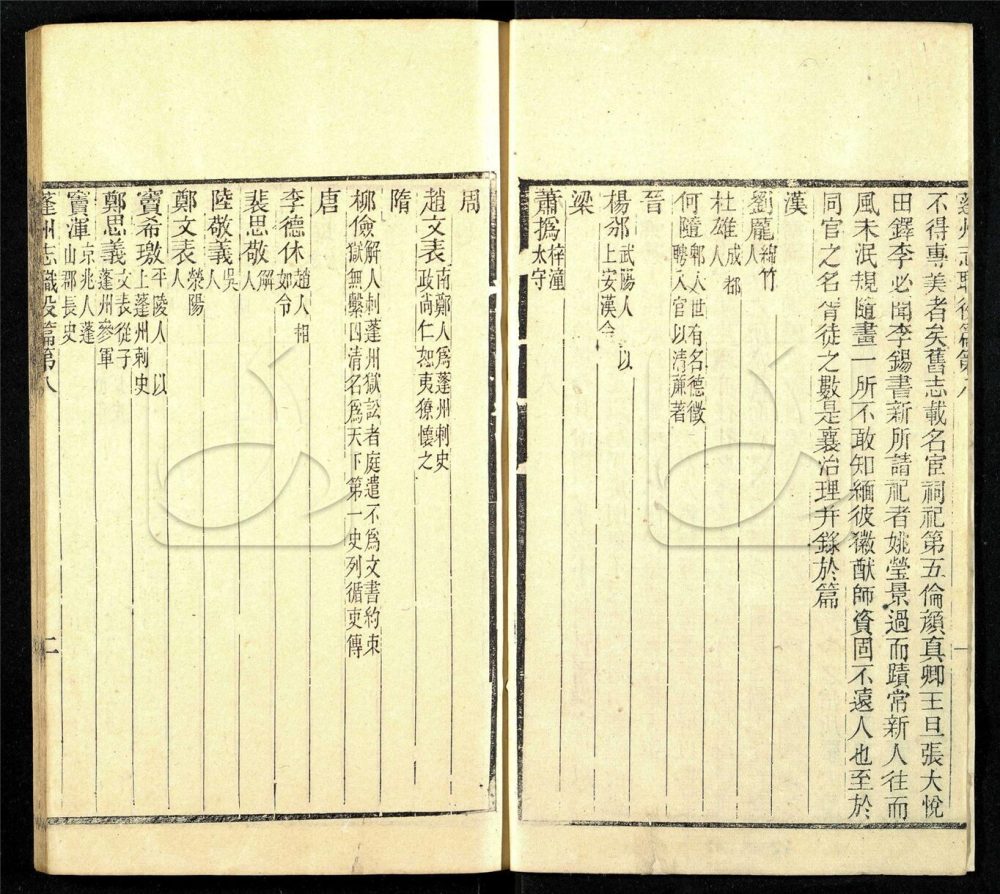 蓬州志職役篇第八 一
不得專美者矣舊志載名宦祠祀第五倫顏真卿王旦張大悅
田鐸李必聞李錫書新所請祀者姚瑩景過而蹟常新人往而
風未泯規隨畫一所不敢知緬彼徽猷師資固不遠人也至於
同官之名胥徒之數是襄治理并錄於篇
漢
劉龐綿竹人
杜雄成都人
何隨郫人世有名德徵聘入官以清廉著
晉
楊邠武陽人以上安漢令
梁
蕭撝梓潼太守
周
趙文表南鄭人爲蓬州刺史政尚仁恕夷獠懷之
隋
柳儉解人刺蓬州獄訟者庭遣不爲文書約束獄無繫囚清名爲天下第一史列循吏傳
唐
李德休趙人相如令
裴思敬解人
陸敬義吳人
鄭文表滎陽人
竇希璬平陵人以上蓬州刺史
鄭思義文表從子蓬州參軍
竇渾京兆人蓬山郡長史
蓬州志職役篇第八 二